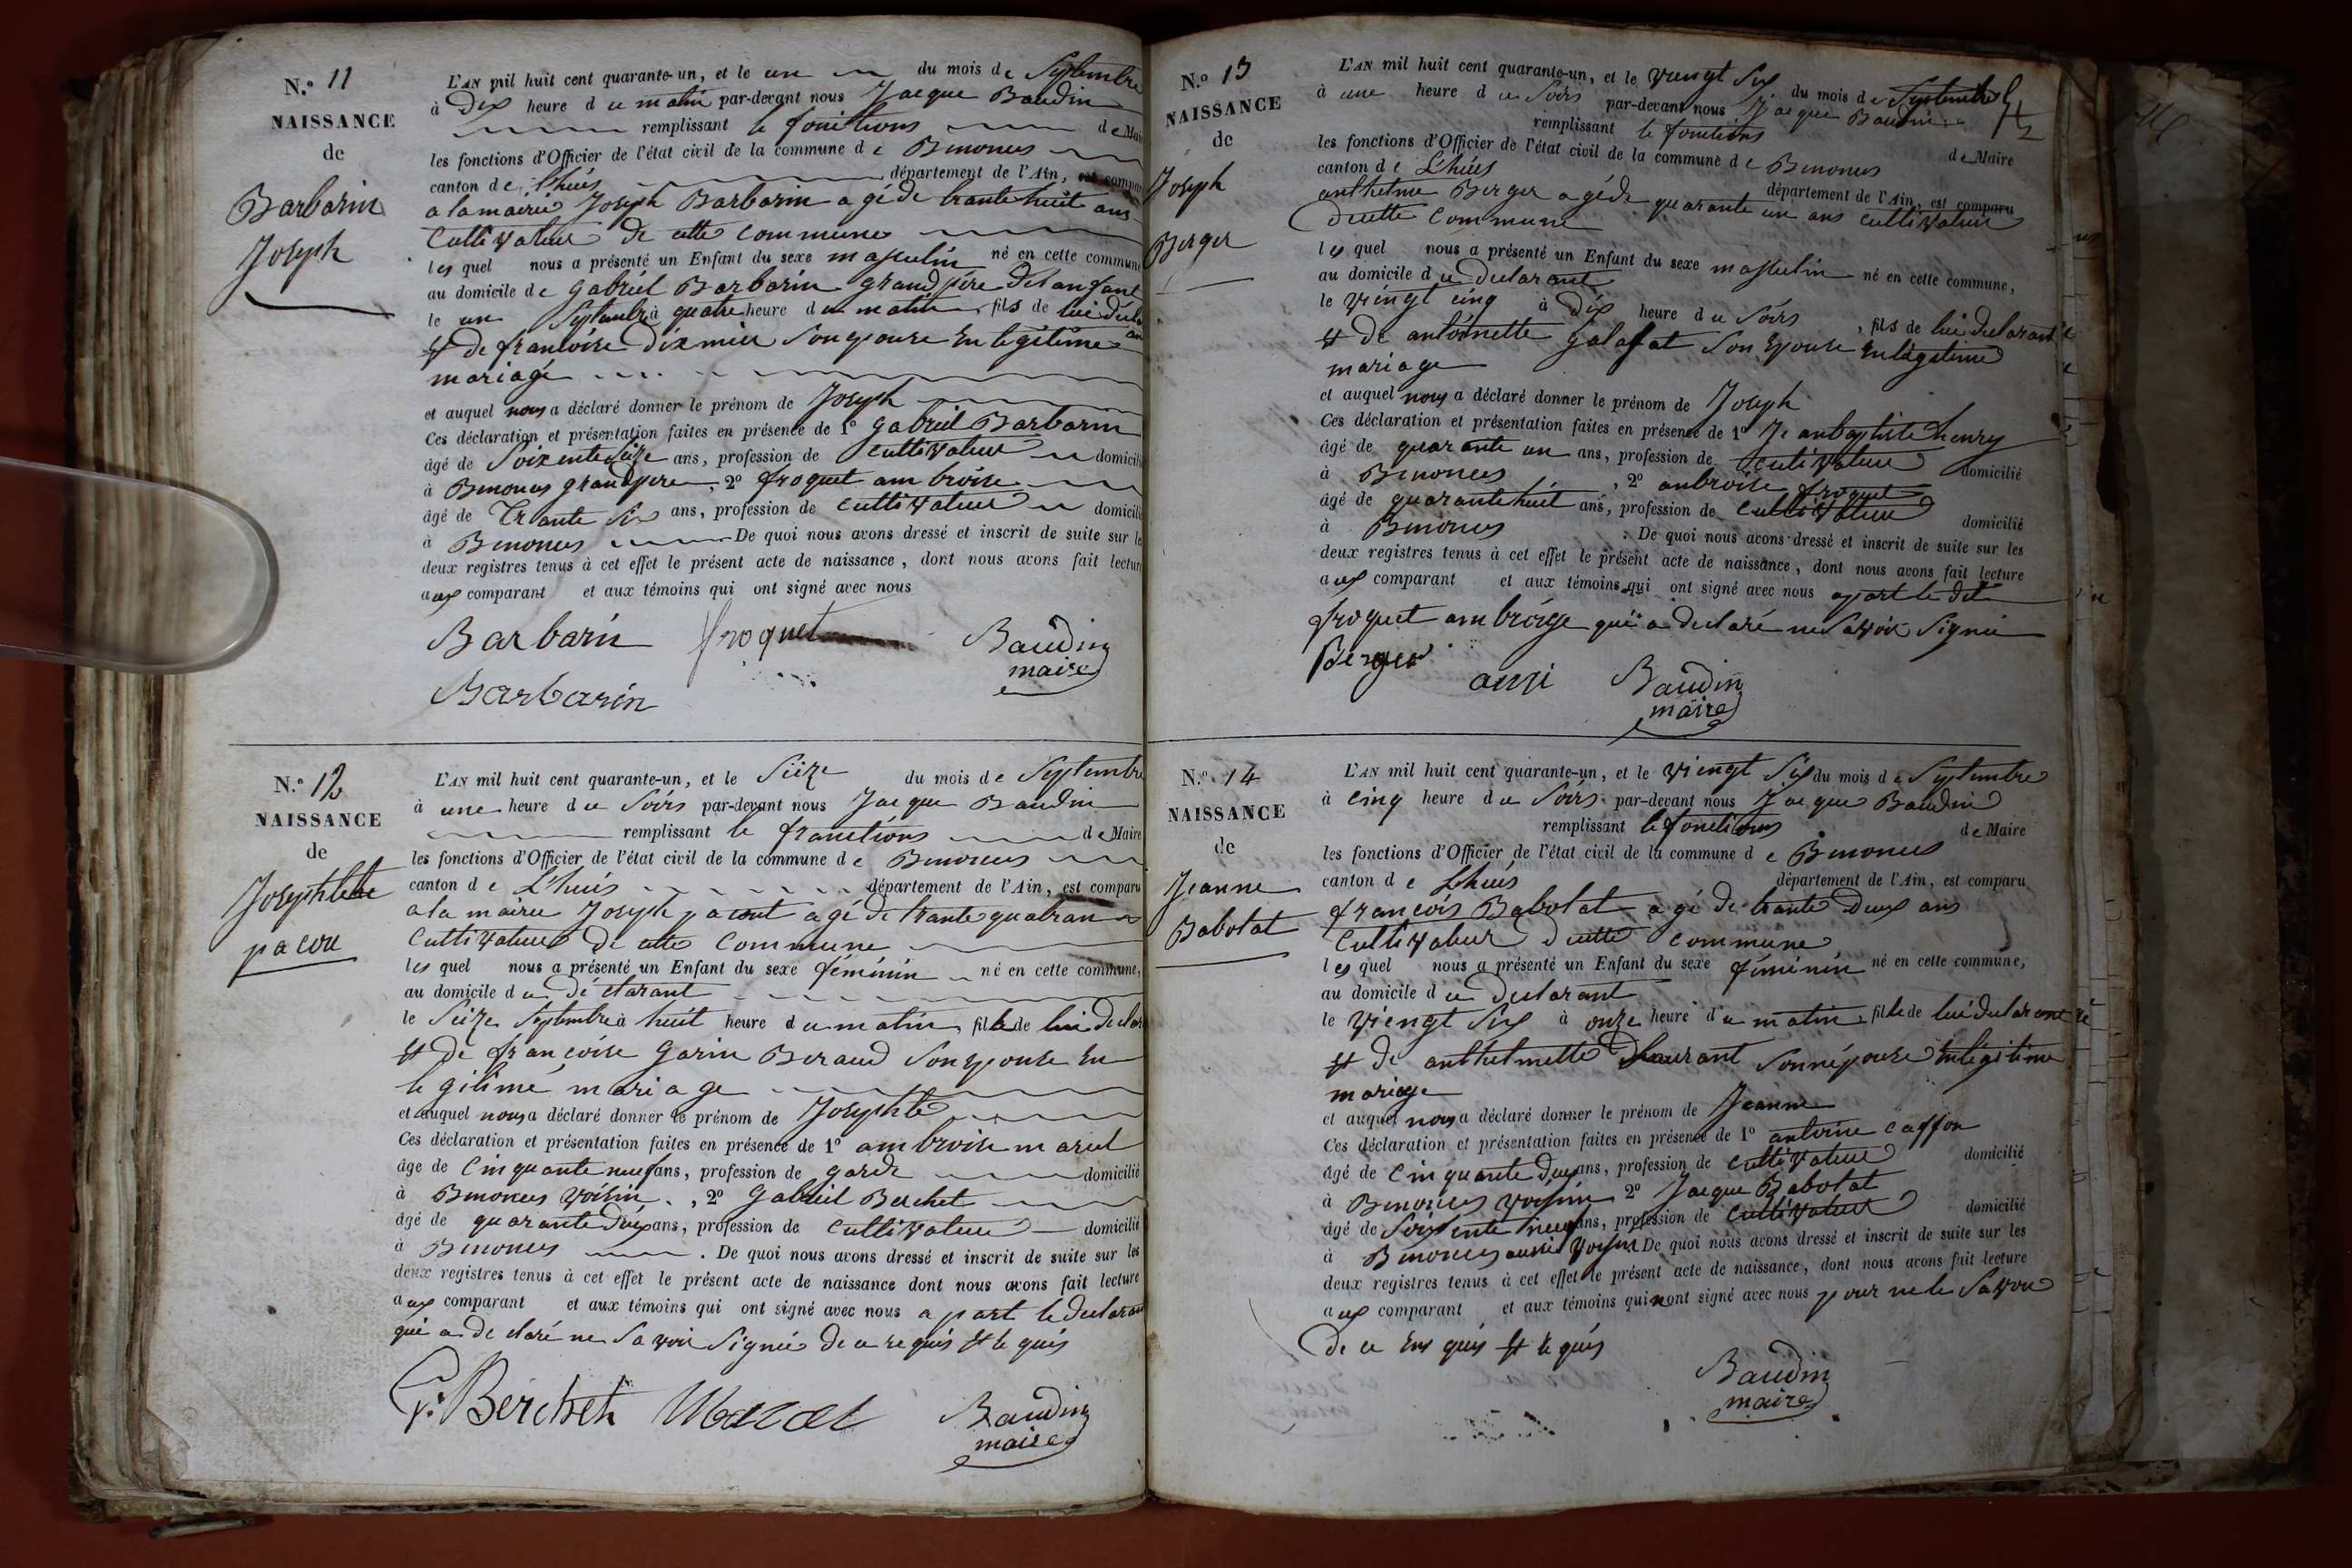 N.º 11
NAISSANCE
de
Barbarin
Joseph
L'AN mil huit cent quarante-un, et le un du mois de Septembre
à Dix heure du matin par-devant nous Jacque Baudin
remplissant le fonitions de Mai
les fonctions d'Officier de l'état civil de la commune de Benonces
canton de Lhuis département de l'Ain, est compar
a la mairie Joseph Barbarin agé de trante huit ans
Cultivateur de cette commune
lequel nous a présenté un Enfant du sexe masculin né en cette commune
au domicile de gabriel Barbarin grand père de lanfant
le un Septembre à quatre heure du matin fils de lui décla
et de francoise dixmier Son epouse En legitime
mariage
et auquel nous a déclaré donner le prénom de Joseph
Ces déclaration et présentation faites en présence de 1º gabriel Barbarin
âgé de Soixente Seize ans, profession de Cultivateur domicili
à Benonces grandpere, 2º froquet ambroise
âgé de Trante Six ans, profession de Cultivateur domicili
à Benonces De quoi nous avons dressé et inscrit de suite sur le
deux registres tenus à cet effet le présent acte de naissance, dont nous avons fait lectur
aux comparant et aux témoins qui ont signé avec nous
Barbarin froquet Baudin
maire
Barbarin
N.º 12
NAISSANCE
de
Josephte
pacou
L'AN mil huit cent quarante-un, et le Seize du mois de Septembre
à une heure du Soirs par-devant nous Jacque Baudin
remplissant le franctions de Maire
les fonctions d'Officier de l'état civil de la commune de Benonces
canton de Lhuis département de l'Ain, est comparu
a la mairie Joseph pacout agé de trante quatran
Cultivateur de cette Commune
lequel nous a présenté un Enfant du sexe féminin né en cette commune,
au domicile du déclarant
le Seize Septembre à huit heure du matin fille de lui decla
et de francoise garin Beraud Son epouse En
legitime mariage
et auquel nous a déclaré donner le prénom de Josephte
Ces déclaration et présentation faites en présence de 1º ambroise marel
âgé de Cinquante neuf ans, profession de garde domicilié
à Benonces voisin, 2º Gabriel Berchet
âgé de quarante ans, profession de Cultivateur domicilié
à Benonces. De quoi nous avons dressé et inscrit de suite sur les
deux registres tenus à cet effet le présent acte de naissance dont nous avons fait lecture
aux comparant et aux témoins qui ont signé avec nous a part le declaran
qui a declaré ne Savoir Signée de ce requis
G. Berchet Baudin
maire
N.º 13
NAISSANCE
de
Joseph
Berger
L'AN mil huit cent quarante-un, et le vingt Six du mois de Septembre
à une heure du Soirs par-devant nous Jacque Baudin
remplissant le fonitions de Maire
les fonctions d'Officier de l'état civil de la commune de Benonces
canton de Lhuis département de l'Ain, est comparu
anthelme Berger agé de quarante un ans Cultivateur
decette Commune
lequel nous a présenté un Enfant du sexe masculin né en cette commune,
au domicile du declarant
le vingt cinq à dix heure du Soirs, fils de lui declarant
et de antoinette galafat Son Epouse En legitime
mariage
et auquel nous a déclaré donner le prénom de Joseph
Ces déclaration et présentation faites en présence de 1º Jeanbaptiste henry
âgé de quarante un ans, profession de Cultivateur domicilié
à Benonces, 2º anbroise froquet
âgé de quarante huit ans, profession de Cultivateur domicilié
à Benonces. De quoi nous avons dressé et inscrit de suite sur les
deux registres tenus à cet effet le présent acte de naissance, dont nous avons fait lecture
aux comparant et aux témoins qui ont signé avec nous apart le dit
froquet ambroige qui a declaré ne Savoir Signée
Berger anri Baudin
maire
N.º 14
NAISSANCE
de
Jeanne
Babolat
L'AN mil huit cent quarante-un, et le vingt Six du mois de Septembre
à Cinq heure du Soirs par-devant nous Jacque Baudin
remplissant le fonctions de Maire
les fonctions d'Officier de l'état civil de la commune de Benonces
canton de Lhuis département de l'Ain, est comparu
francois Babolat agé de trante deux ans
Cultivateur decette commune
lequel nous a présenté un Enfant du sexe féminin né en cette commune,
au domicile du declarant
le vingt Six à onze heure du matin fille de lui declarant
et de anthelmette Durant Sonnépouse En legitime
mariage
et auquel nous a déclaré donner le prénom de Jeanne
Ces déclaration et présentation faites en présence de 1º antoine caffon
âgé de Cinquante deux ans, profession de Cultivateur domicilié
à Benonces voisin 2º Jacque Babolat
âgé de Soixente neuf ans, profession de Cultivateur domicilié
à Benonces aussi voisin De quoi nous avons dressé et inscrit de suite sur les
deux registres tenus à cet effet le présent acte de naissance, dont nous avons fait lecture
aux comparant et aux témoins qui nont signé avec nous pour ne le Savoir
de ce Enquis et requis
Baudin
maire